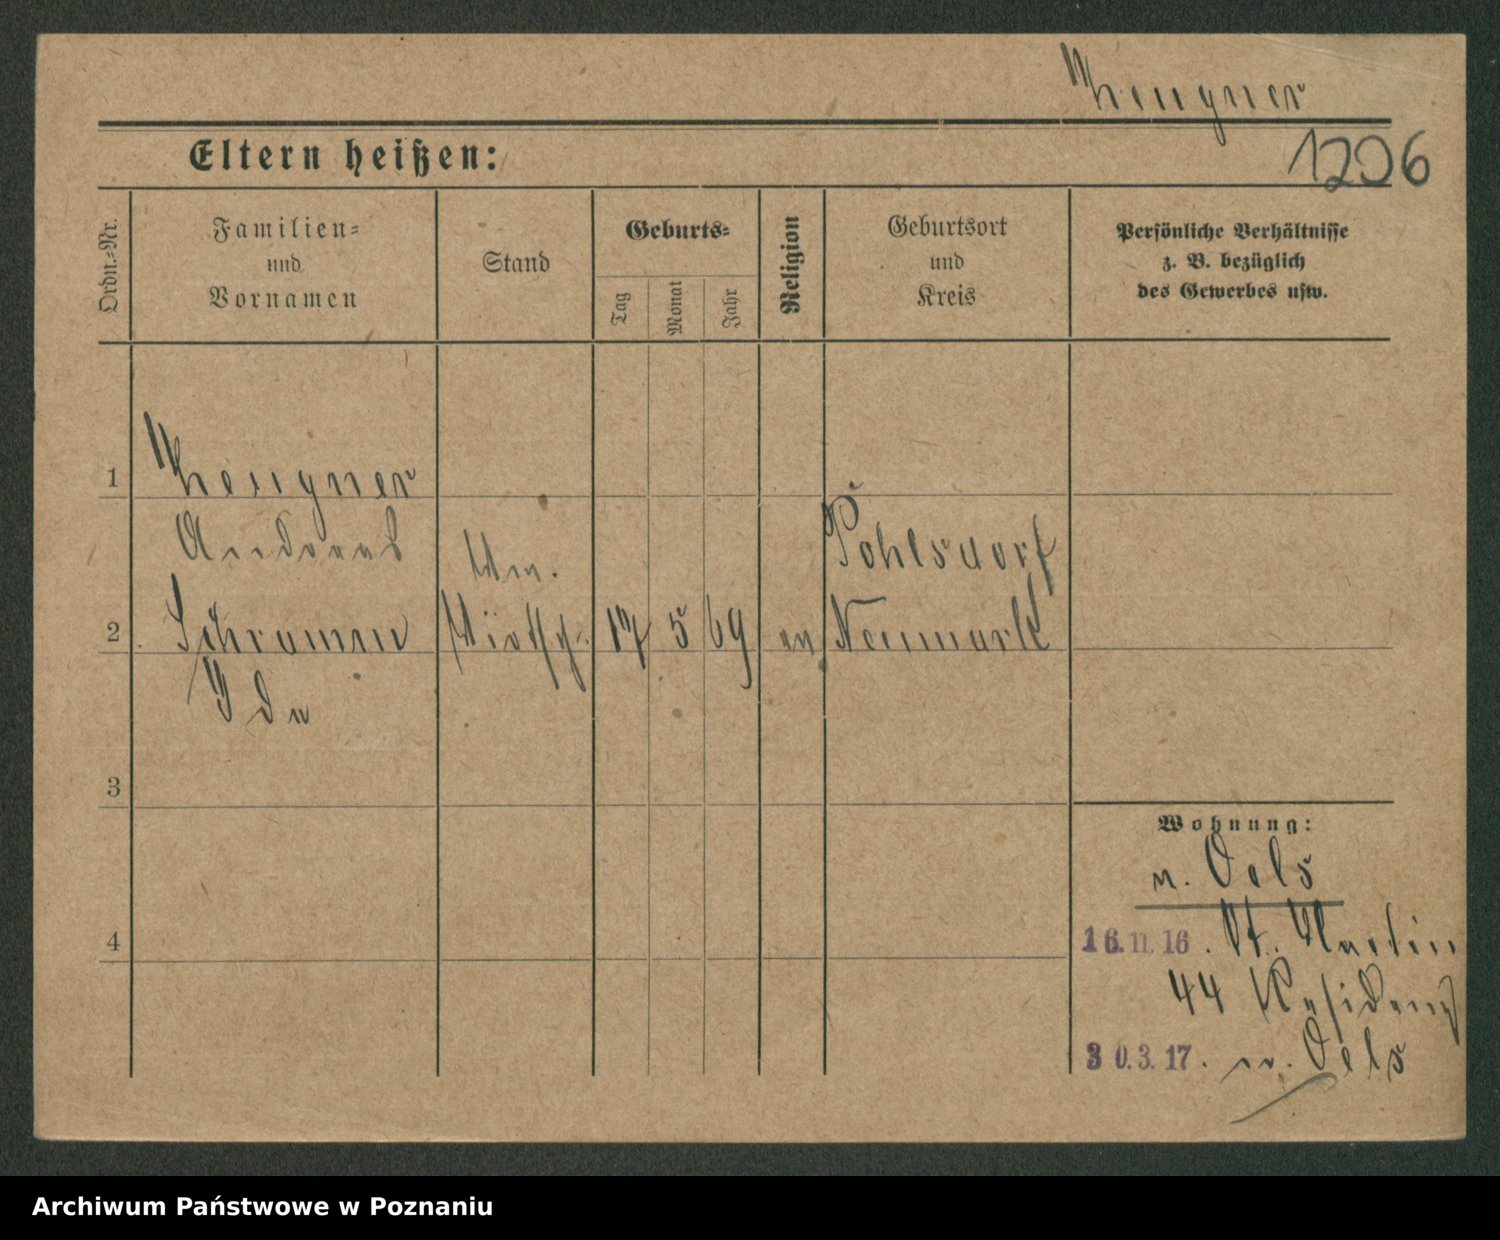 Zeugner
Eltern heißen:
1206
Ordn.-Nr.
Familien-
und
Vornamen
Stand
Geburts-
Tag
Monat
Jahr
Religion
Geburtsort
und
Kreis
Persönliche Verhältnisse
z. B. bezüglich
des Gewerbes usw.
1
Andreas
Pohlsdorf
2 Schramm 17 5 69 Neumarkt
Ida
3
Wohnung:
n. Oels
4
16.11.16. St. Martin
44 Residenz
30.3.17. n. Oels
Archiwum Państwowe w Poznaniu